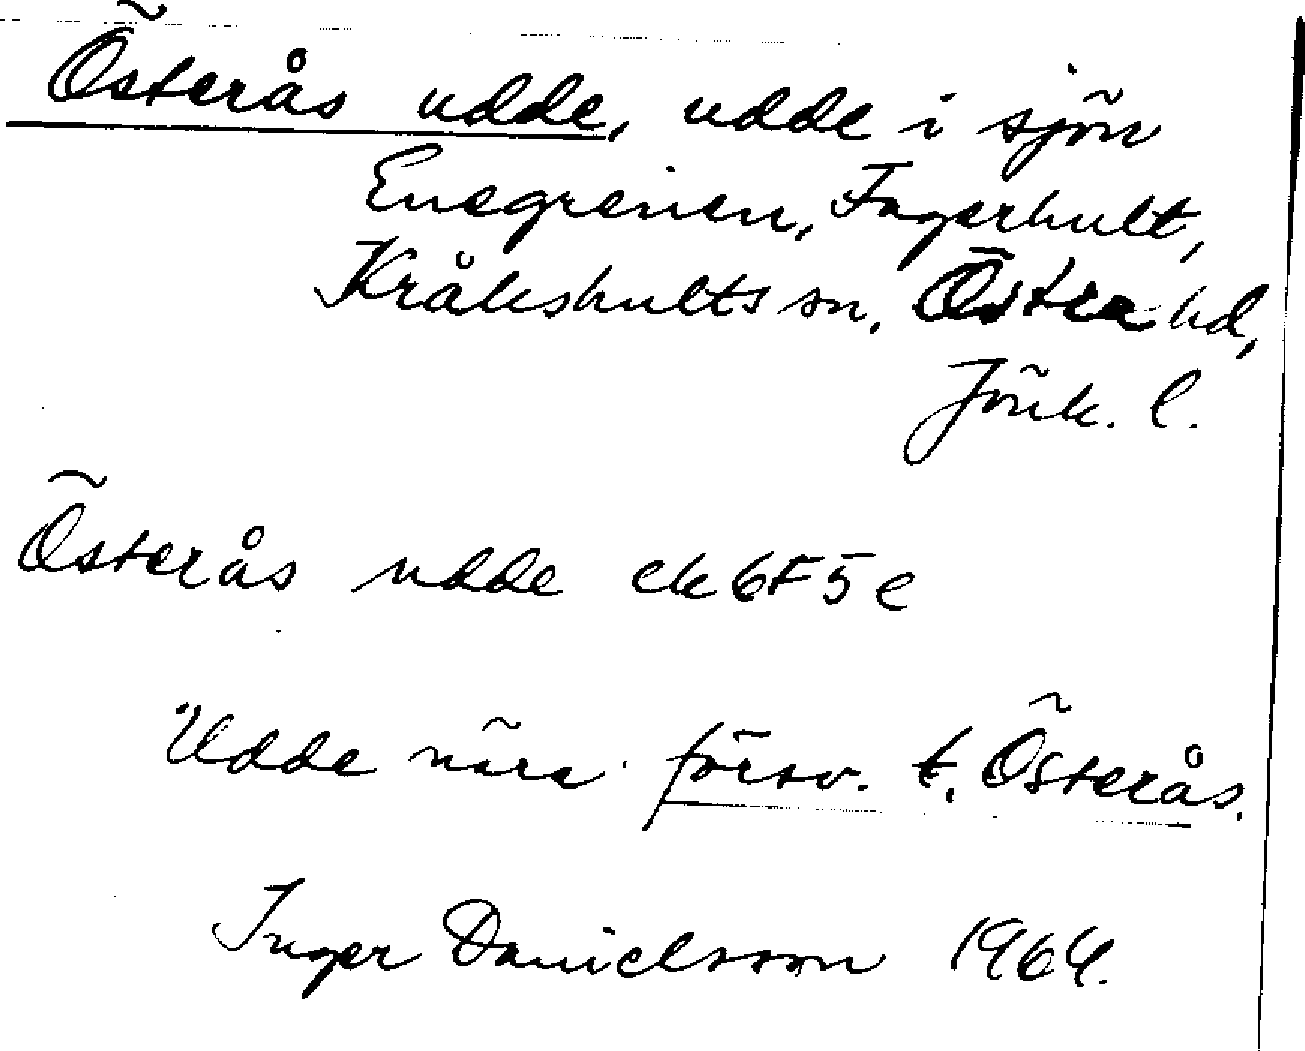 Österås udde, udde i sjön
Enegrenen, Fagerhult,
Kråkshults sn, Östra hd,
Jönk. l.
Österås udde ek 6F5e
Udde nära försv. t. Österås.
Inger Danielsson 1964.